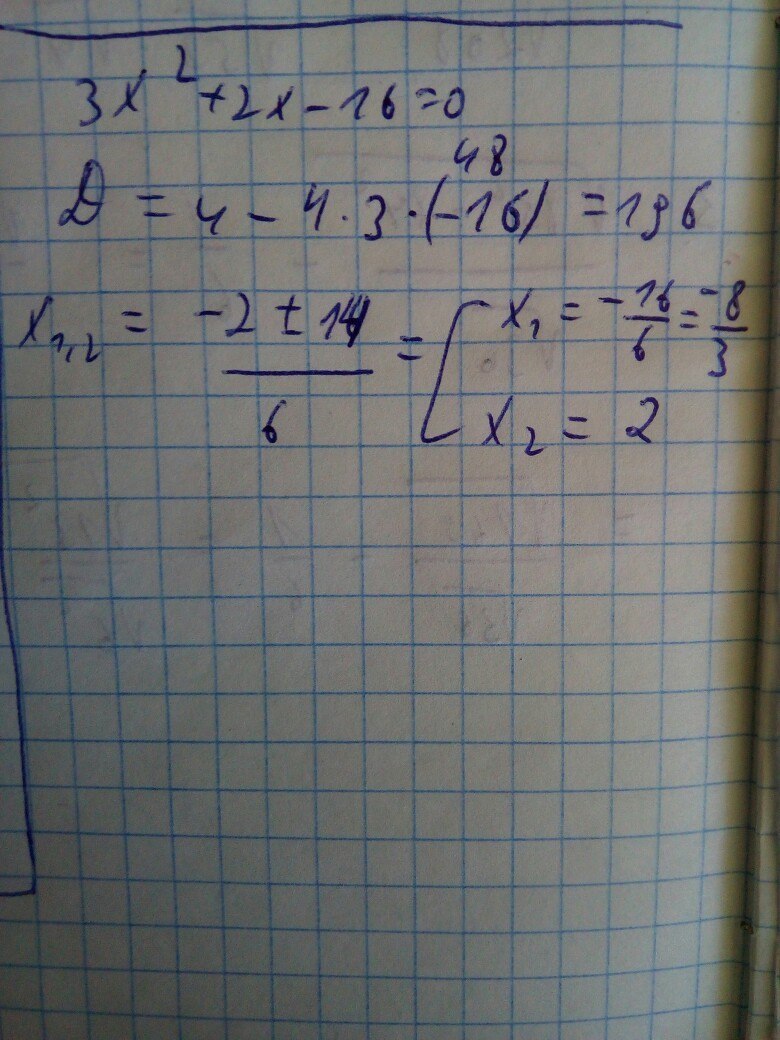 3x² + 2x - 16 = 0
48
D = 4 - 4 · 3 · (-16) = 196
x₁,₂ = (-2 ± 14)/6 = [ x₁ = -16/6 = -8/3
x₂ = 2